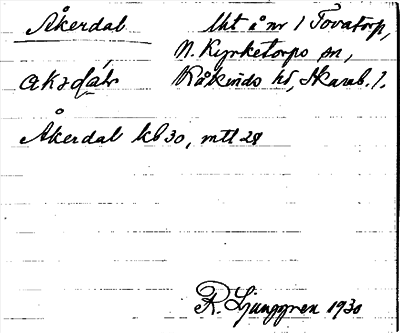 Åkerdal
lht i nr 1 Tovatorp,
N. Kyrketorps sn,
Kåkinds hd, Skarab. l.
Åkerdal kb 30, mtl 28
R. Ljunggren 1930